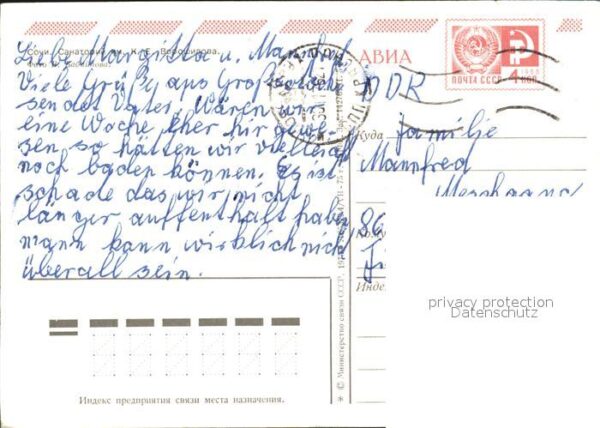 Сочи. Санаторий им. К. Е. Ворошилова.
Liebe Margitta u. Manfred
Viele Grüße aus Großsotschi
sendet Vater. Wären wir
eine Woche eher hir gewe-
sen so hätten wir vielleicht
noch baden können. Es ist
schade das wir nicht
länger auffenthalt haben
mann kann wirklich nich
überall sein.
АВИА
ПОЧТА СССР
4 КОП
DDR
Куда
Familie
Mannfred
86
Инде
privacy protection
Datenschutz
© Министерство связи СССР, 19
Индекс предприятия связи места назначения.